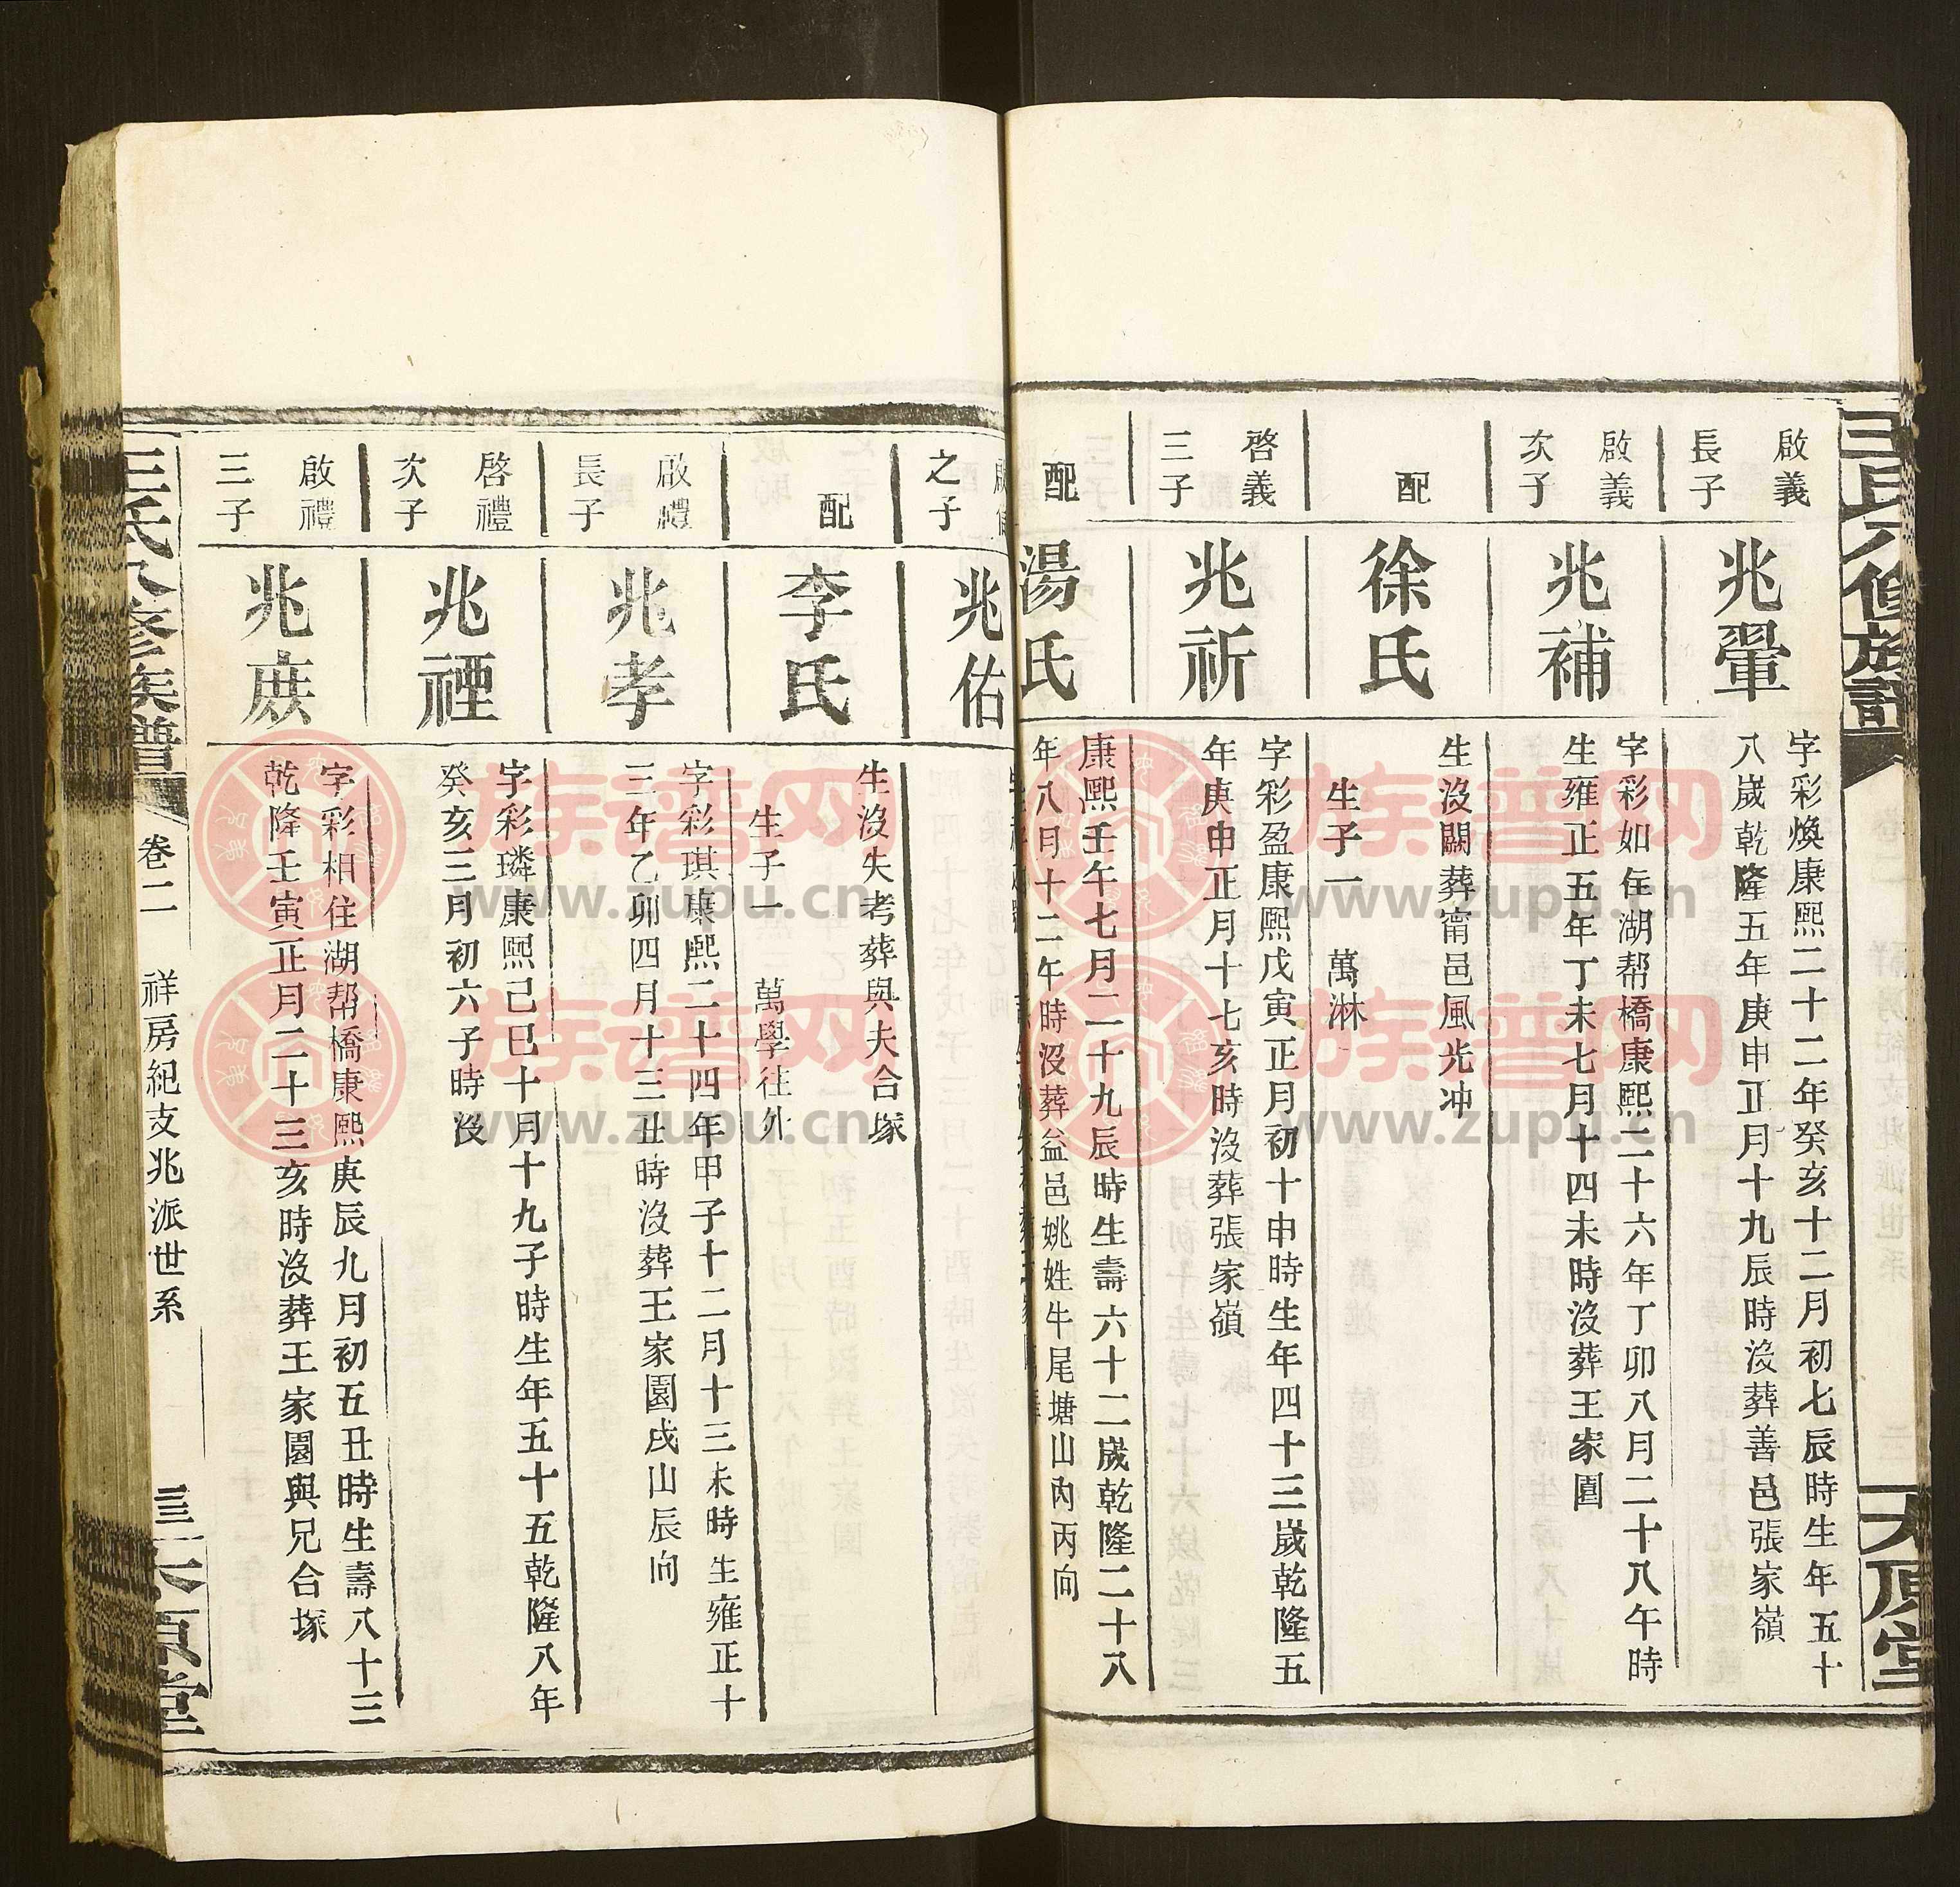 王氏八修族譜
太原堂
啟義
長子
兆翬
字彩煥康熙二十二年癸亥十二月初七辰時生年五十
八歲乾隆五年庚申正月十九辰時沒葬善邑張家嶺
啟義
次子
兆補
字彩如住湖帮橋康熙二十六年丁卯八月二十八午時
生雍正五年丁未七月十四未時沒葬王家園
配
徐氏
生沒闕葬甯邑風光冲
生子一 萬淋
啓義
三子
兆祈
字彩盈康熙戊寅正月初十申時生年四十三歲乾隆五
年庚申正月十七亥時沒葬張家嶺
配
湯氏
康熙壬午七月二十九辰時生壽六十二歲乾隆二十八
年八月十二午時沒葬益邑姚姓牛尾塘山內丙向
之子
兆佑
配
李氏
生沒失考葬與夫合塚
生子一 萬學往外
啟禮
長子
兆孝
字彩琪康熙二十四年甲子十二月十三未時生雍正十
三年乙卯四月十三丑時沒葬王家園戌山辰向
啓禮
次子
兆禋
字彩璘康熙己巳十月十九子時生年五十五乾隆八年
癸亥三月初六子時沒
啟禮
三子
兆蔗
字彩相住湖帮橋康熙庚辰九月初五丑時生壽八十三
乾隆壬寅正月二十三亥時沒葬王家園與兄合塚
王氏八修族譜
卷二 祥房紀支兆派世系
三
太原堂
族谱网
www.zupu.cn
族谱网
www.zupu.cn
族谱网
www.zupu.cn
族谱网
www.zupu.cn